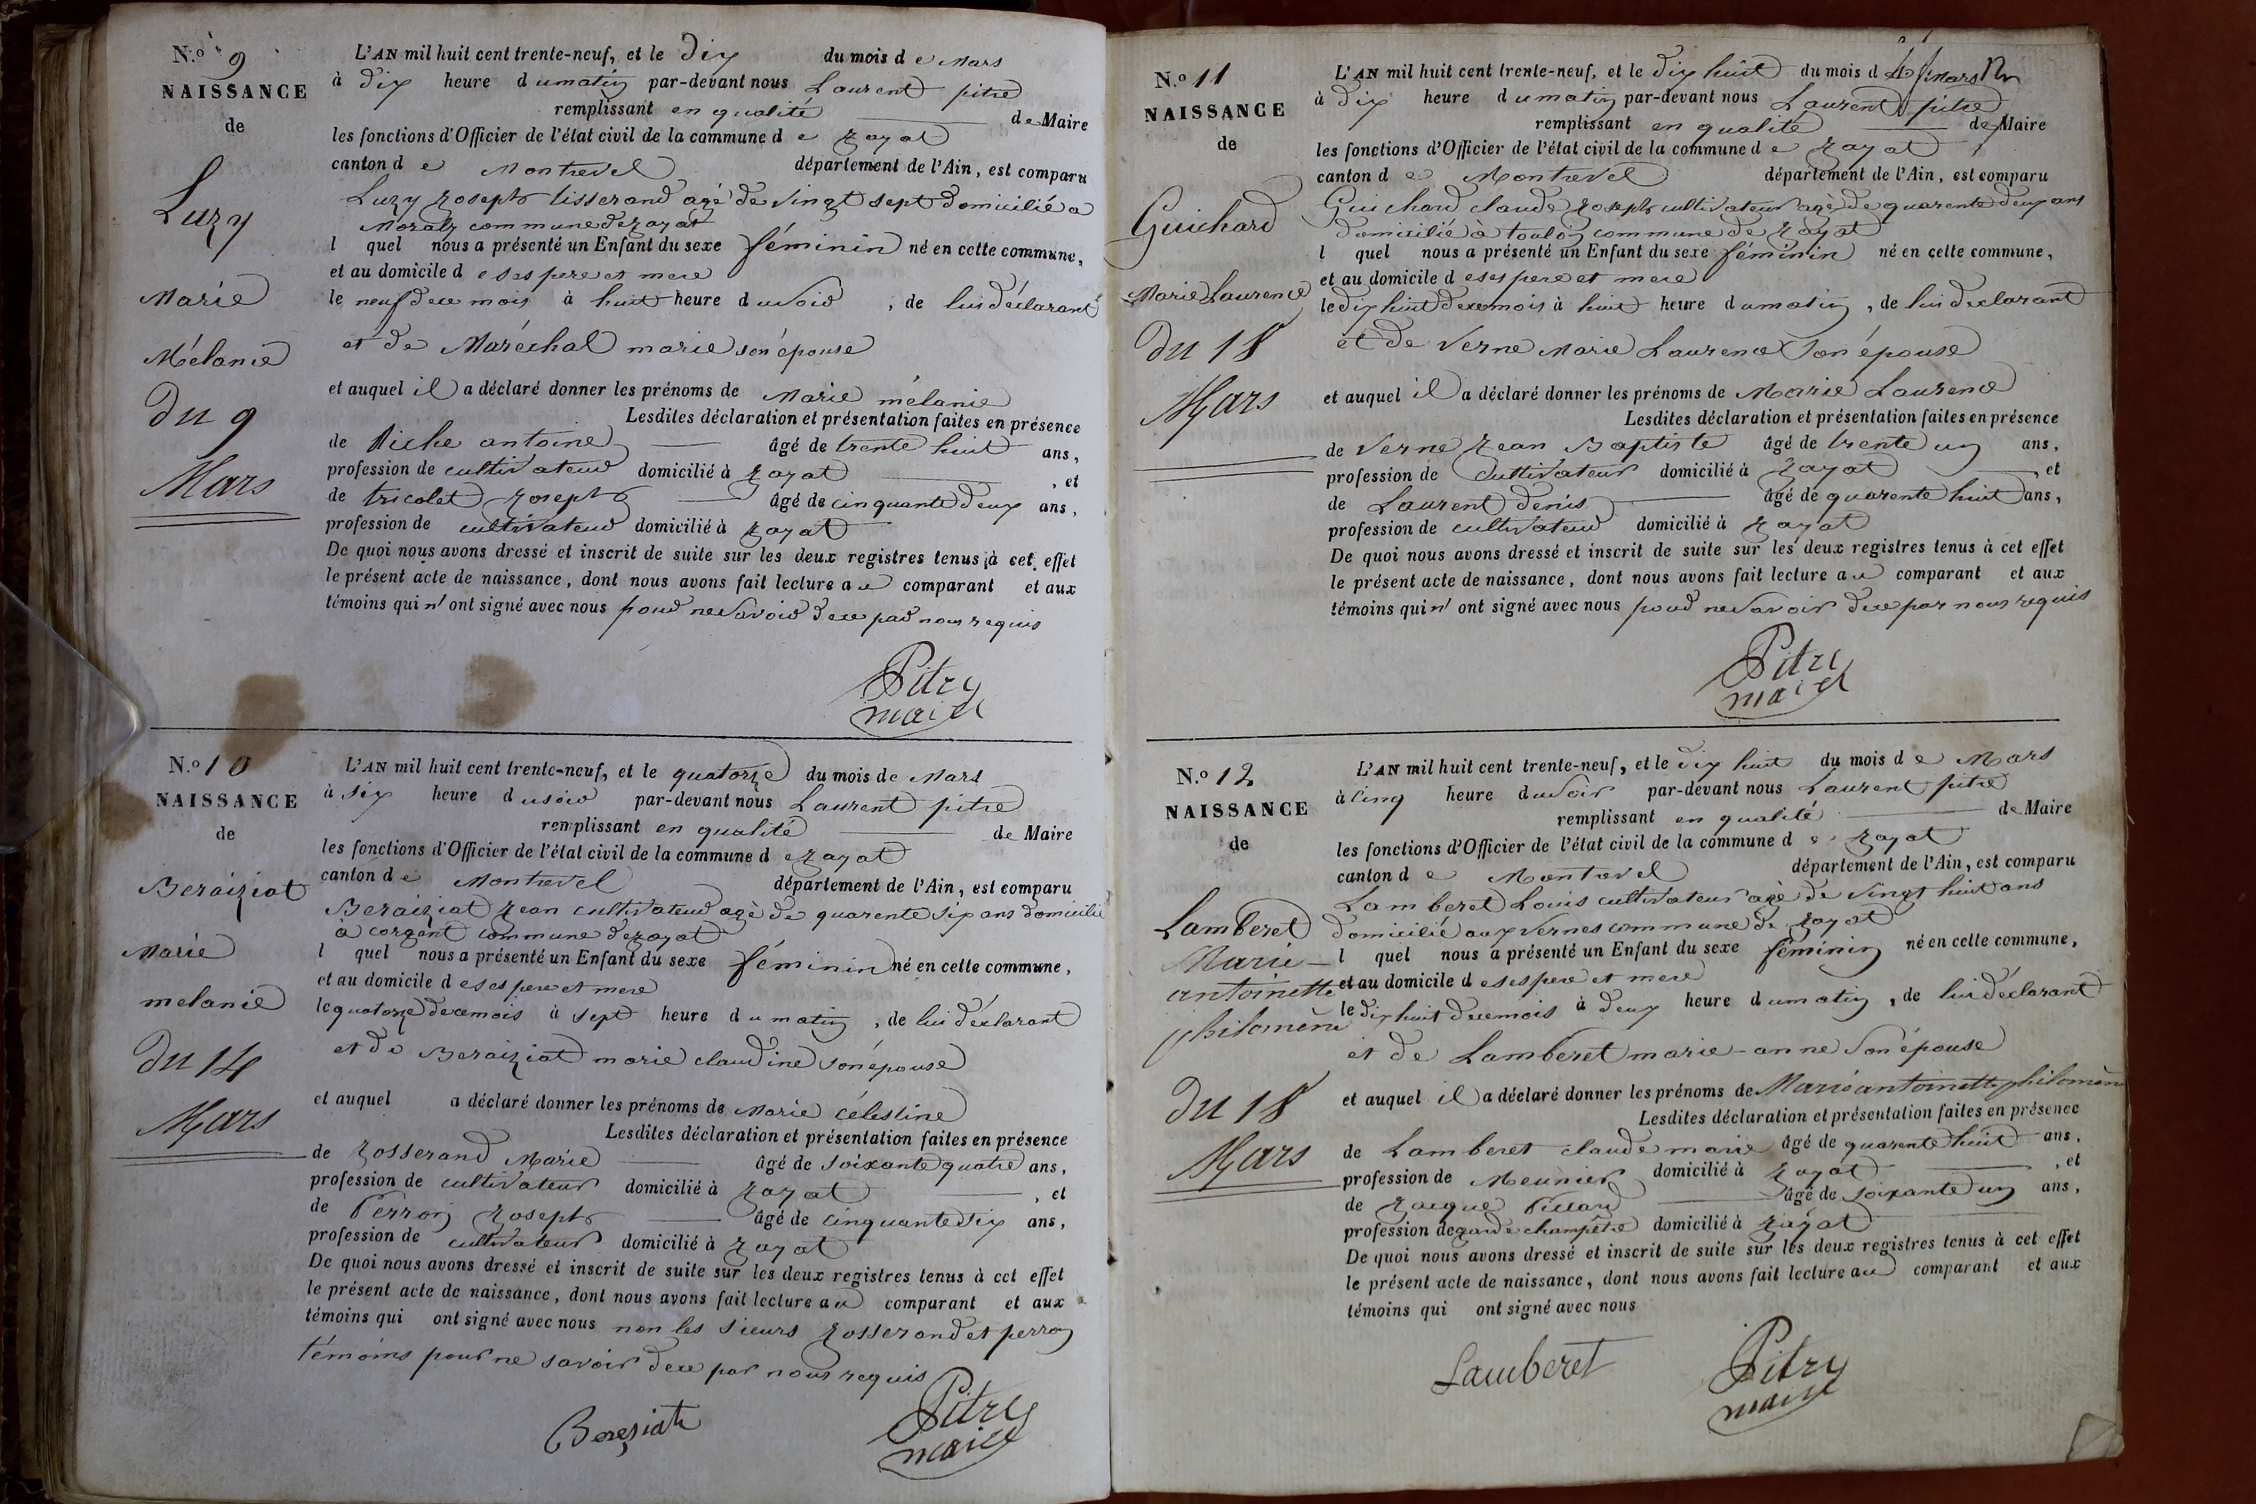 N.º 9
NAISSANCE
de
Luzy
Marie
Mélanie
du 9
Mars
L'AN mil huit cent trente-neuf, et le dix du mois d e Mars
à dix heure d u matin par-devant nous Laurent pitre
remplissant en qualité de Maire
les fonctions d'Officier de l'état civil de la commune d e Zayat
canton d e Montrevel département de l'Ain, est comparu
Luzy Zoseph tisserand agé de vingt sept domicilié a
commune de zayat
l quel nous a présenté un Enfant du sexe féminin né en cette commune,
et au domicile d e ses pere et mere
le neuf dece mois à huit heure d u soir , de lui déclarant
et de Maréchal marie son épouse
et auquel il a déclaré donner les prénoms de Marie mélanie
Lesdites déclaration et présentation faites en présence
de antoine âgé de trente huit ans,
profession de cultivateur domicilié à Zayat , et
de tricolet Zoseph âgé de cinquante deux ans,
profession de cultivateur domicilié à Zayat
De quoi nous avons dressé et inscrit de suite sur les deux registres tenus à cet effet
le présent acte de naissance, dont nous avons fait lecture a u comparant et aux
témoins qui n' ont signé avec nous pour ne savoir dece par nous requis
Pitre
maire
N.º 10
NAISSANCE
de
Beraiziat
Marie
melanie
du 14
Mars
L'AN mil huit cent trente-neuf, et le quatorze du mois de Mars
à six heure d u soir par-devant nous Laurent pitre
remplissant en qualité de Maire
les fonctions d'Officier de l'état civil de la commune d e Zayat
canton d e Montrevel département de l'Ain, est comparu
Beraiziat Zean cultivateur agé de quarente six ans domicilié
à corgent commune de zayat
l quel nous a présenté un Enfant du sexe féminin né en cette commune,
et au domicile d e ses pere et mere
le quatorze dece mois à sept heure d u matin , de lui déclarant
et de Beraiziat marie claudine son épouse
et auquel a déclaré donner les prénoms de Marie célestine
Lesdites déclaration et présentation faites en présence
de Zosserand Marie âgé de soixante quatre ans,
profession de cultivateur domicilié à Zayat , et
de Perron Zoseph âgé de cinquante six ans,
profession de cultivateur domicilié à Zayat
De quoi nous avons dressé et inscrit de suite sur les deux registres tenus à cet effet
le présent acte de naissance, dont nous avons fait lecture a u comparant et aux
témoins qui ont signé avec nous non les sieurs Zosserand et perron
témoins pour ne savoir dece par nous requis
Bereziat
Pitre
maire
N.º 11
NAISSANCE
de
Guichard
Marie Laurence
du 18
Mars
L'AN mil huit cent trente-neuf, et le dix huit du mois d Mars
à dix heure d u matin par-devant nous Laurent pitre
remplissant en qualité de Maire
les fonctions d'Officier de l'état civil de la commune d e Zayat
canton d e Montrevel département de l'Ain, est comparu
Guichard claude Zoseph cultivateur agé de quarente deux ans
domicilié à toulon commune de Zayat
l quel nous a présenté un Enfant du sexe féminin né en cette commune,
et au domicile d e ses pere et mere
le dix huit dece mois à huit heure d u matin , de lui declarant
et de Verne Marie Laurence son épouse
et auquel il a déclaré donner les prénoms de Marie Laurence
Lesdites déclaration et présentation faites en présence
de Verne Zean Baptiste âgé de trente un ans,
profession de Cultivateur domicilié à Zayat et
de Laurent denis âgé de quarente huit ans,
profession de cultivateur domicilié à Zayat
De quoi nous avons dressé et inscrit de suite sur les deux registres tenus à cet effet
le présent acte de naissance, dont nous avons fait lecture a u comparant et aux
témoins qui n' ont signé avec nous pour ne savoir dece par nous requis
Pitre
maire
N.º 12
NAISSANCE
de
Lamberet
Marie
antoinette
philomène
du 18
Mars
L'AN mil huit cent trente-neuf, et le dix huit du mois d e Mars
à cinq heure d u soir par-devant nous Laurent pitre
remplissant en qualité de Maire
les fonctions d'Officier de l'état civil de la commune d e Zayat
canton d e Montrevel département de l'Ain, est comparu
Lamberet Louis cultivateur agé de vingt huit ans
domicilié aux vernes commune de Zayat
l quel nous a présenté un Enfant du sexe féminin né en cette commune,
et au domicile d e ses pere et mere
le dix huit dece mois à deux heure d u matin , de lui déclarant
et de Lamberet marie-anne son épouse
et auquel il a déclaré donner les prénoms de Marie antoinette philomène
Lesdites déclaration et présentation faites en présence
de Lamberet claude marie âgé de quarente huit ans,
profession de Meunier domicilié à Zayat , et
de Zacque âgé de soixante un ans,
profession de garde champêtre domicilié à Zayat
De quoi nous avons dressé et inscrit de suite sur les deux registres tenus à cet effet
le présent acte de naissance, dont nous avons fait lecture au comparant et aux
témoins qui ont signé avec nous
Lamberet
Pitre
maire